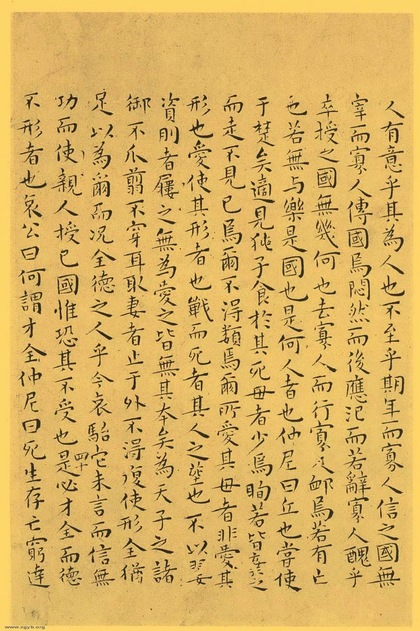 人有意乎其為人也不至乎期年而寡人信之國無
宰而寡人傳國焉悶然而後應氾而若辭寡人醜乎
卒授之國無幾何也去寡人而行寡人卹焉若有亡
也若無与樂是國也是何人者也仲尼曰丘也嘗使
于楚矣適見㹠子食於其死母者少焉眴若皆棄之
而走不見已焉爾不得類焉爾所愛其母者非愛其
形也愛使其形者也戰而死者其人之塟也不以翣
資刖者屨之無為愛之皆無其本矣為天子之諸
御不爪翦不穿耳取妻者止于外不得復使形全猶
足以為爾而况全德之人乎今哀駘它未言而信無
四十
功而使親人授已國惟恐其不受也是必才全而德
不形者也哀公曰何謂才全仲尼曰死生存亡窮達
www.zgyb.org